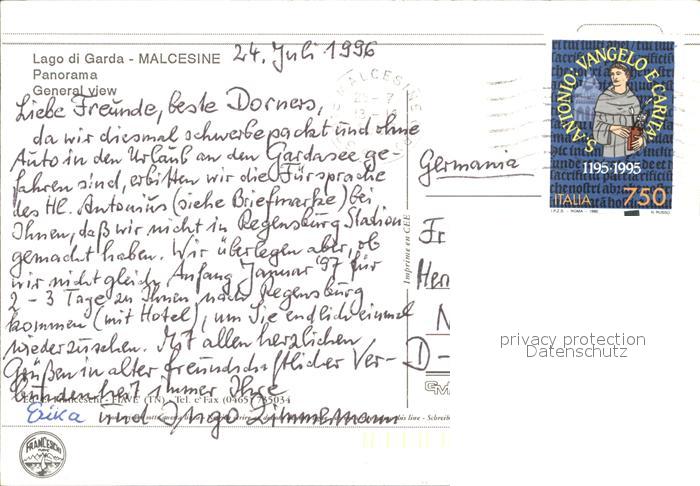 Lago di Garda - MALCESINE
Panorama
General view
24. Juli 1996
Liebe Freunde, beste Dorners,
da wir diesmal schwerbepackt und ohne
Auto in den Urlaub an den Gardasee ge-
fahren sind, erbitten wir die Fürsprache
des Hl. Antonius (siehe Briefmarke) bei
Ihnen, daß wir nicht in Regensburg Station
gemacht haben. Wir überlegen aber, ob
wir nicht gleich Anfang Januar '97 für
2-3 Tage zu Ihnen nach Regensburg
kommen (mit Hotel), um Sie endlich einmal
wiederzusehen. Mit allen herzlichen
Grüßen in alter freundschaftlicher Ver-
bundenheit immer Ihre
Erika und Ingo Zimmermann
(TN) - Tel. e Fax (0465) 735034
FRANCESCHI
Imprime en CEE
MALCESINE
S. ANTONIO: VANGELO E CARITA'
1195-1995
ITALIA 750
I.P.Z.S. - ROMA -
N. RUSSO
Germania
Fr
Her
N
D-
GM
privacy protection
Datenschutz